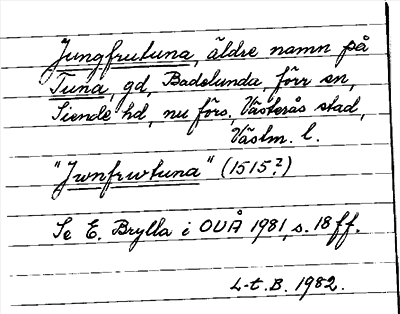 Jungfrutuna, äldre namn på
Tuna, gd, Badelunda, förr sn,
Siende hd, nu förs, Västerås stad,
Västm. l.
"Jwnfrwtuna" (1515?)
Se E. Brylla i OUÅ 1981, s. 18 ff.
L-t. B. 1982.